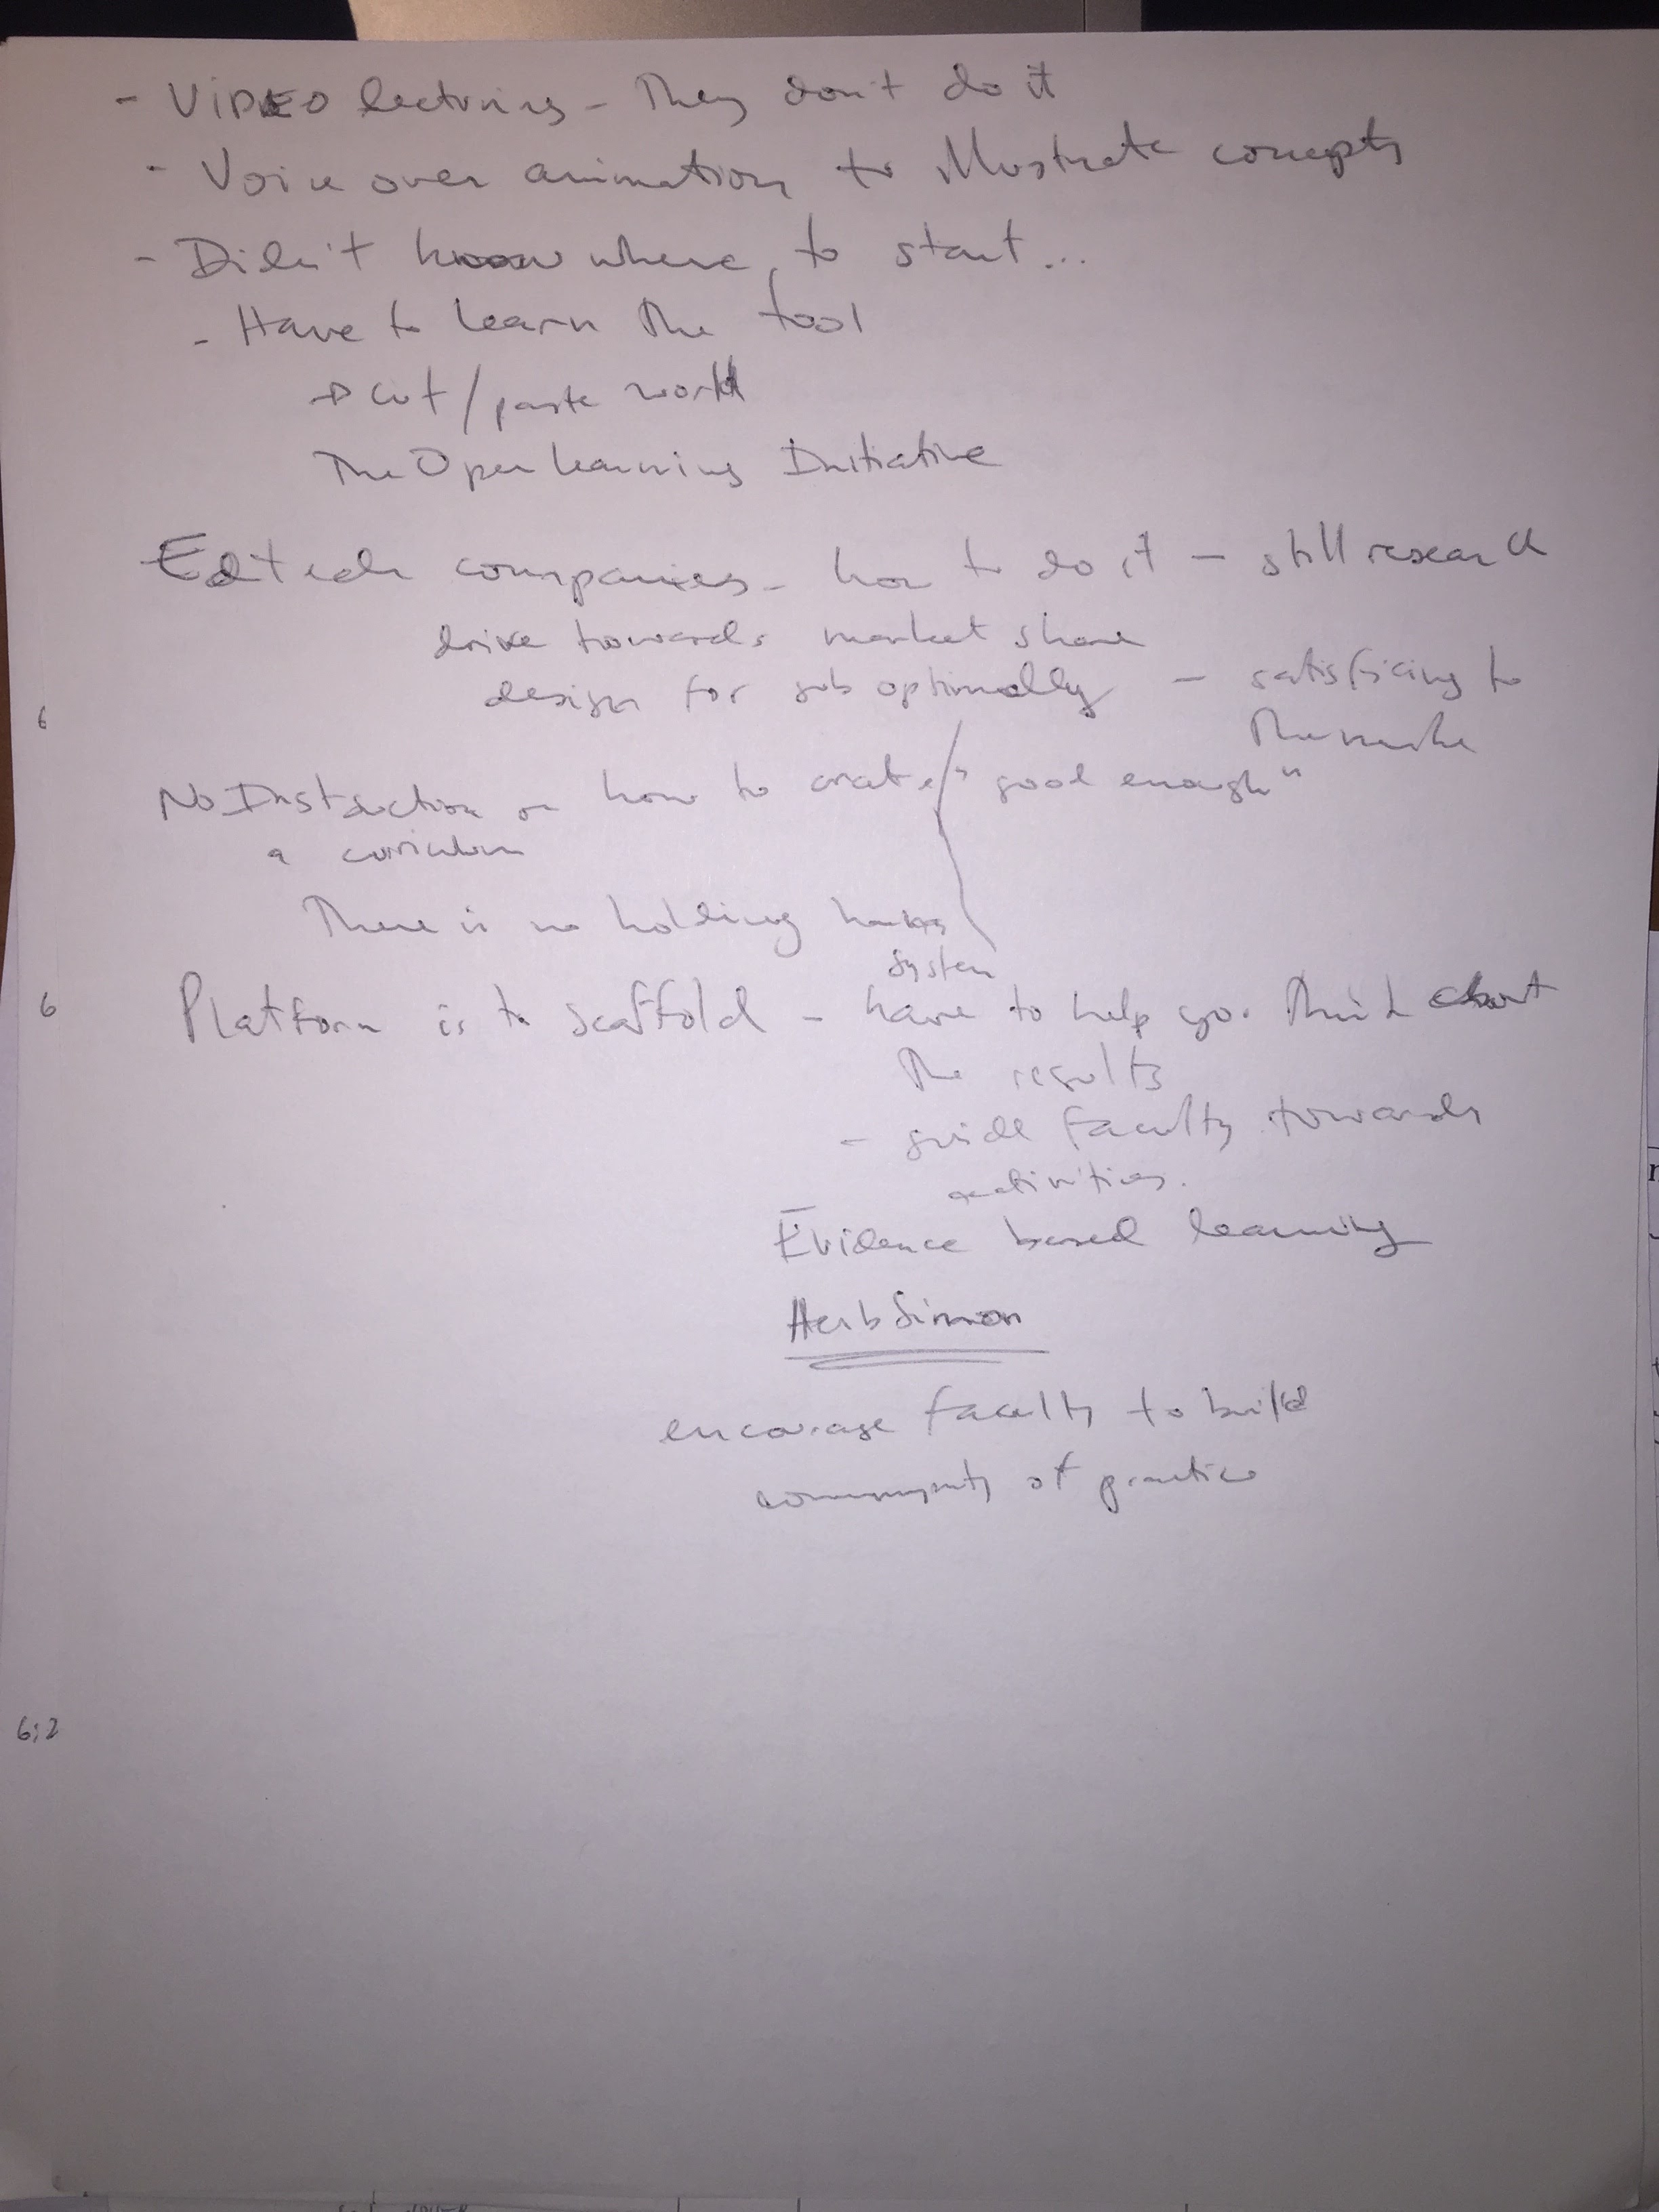 - VIDEO lecturing - They don't do it
- Voice over animation to illustrate concepts
- Didn't know where to start...
- Have to learn the tool
→ cut/paste world
The Open Learning Initiative
Edtech companies - how to do it - still research
drive towards market share
design for sub optimally - satisficing to
6
No Instruction on how to create "good enough"
a curriculum
There is no holding hands
system
6 Platform is to scaffold - have to help you think about
the results
- guide faculty towards
activities.
- Evidence based learning
Herb Simon
encourage faculty to build
community of practice
6:2